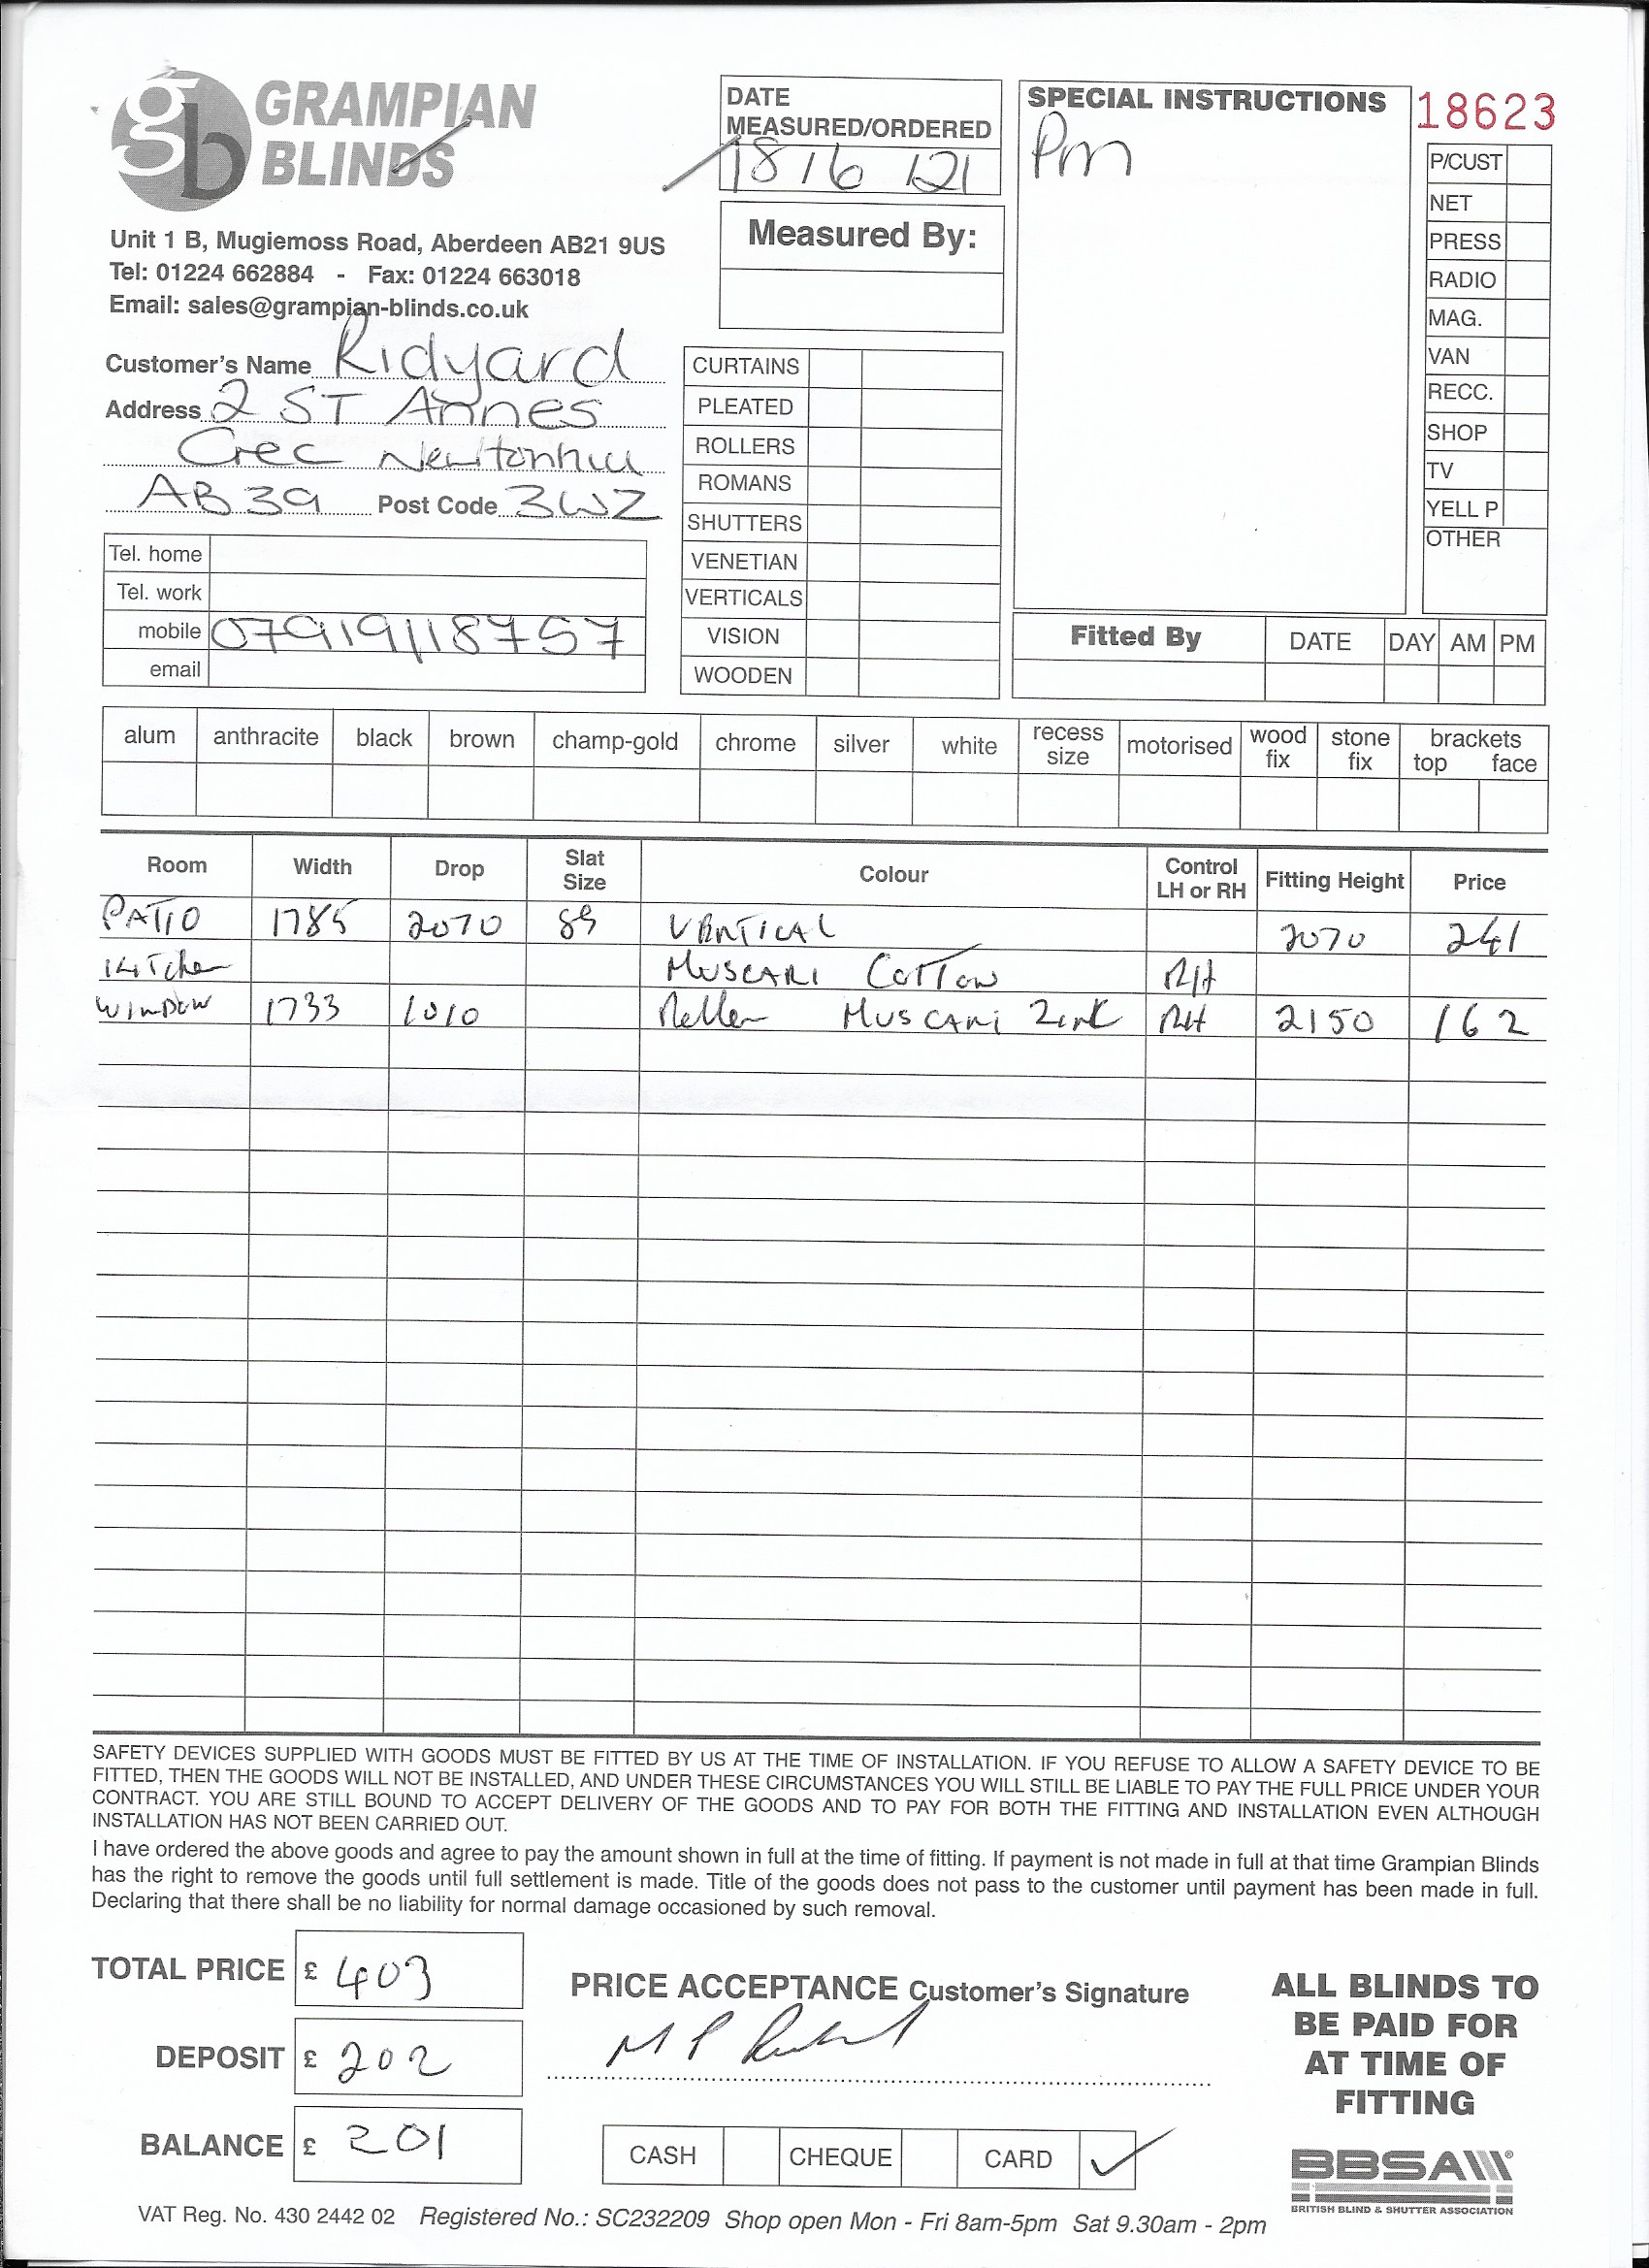 gb GRAMPIAN
BLINDS
Unit 1 B, Mugiemoss Road, Aberdeen AB21 9US
Tel: 01224 662884 - Fax: 01224 663018
Email: sales@grampian-blinds.co.uk
DATE
MEASURED/ORDERED
18/6/21
Measured By:
SPECIAL INSTRUCTIONS
Pm
18623
P/CUST
NET
PRESS
RADIO
MAG.
VAN
RECC.
SHOP
TV
YELL P
OTHER
Customer's Name Ridyard
Address 2 ST Annes
Crec Newtonhill
AB39 Post Code 3WZ
Tel. home
Tel. work
mobile 07919118757
email
CURTAINS
PLEATED
ROLLERS
ROMANS
SHUTTERS
VENETIAN
VERTICALS
VISION
WOODEN
Fitted By DATE DAY AM PM
alum anthracite black brown champ-gold chrome silver white recess size motorised wood fix stone fix brackets top face
Room Width Drop Slat Size Colour Control LH or RH Fitting Height Price
PATIO 1785 2070 89 VERTICAL 2070 241
KITchen MUSCARI COTTON RH
WINDOW 1733 1010 Roller MUSCARI Zink RH 2150 162
SAFETY DEVICES SUPPLIED WITH GOODS MUST BE FITTED BY US AT THE TIME OF INSTALLATION. IF YOU REFUSE TO ALLOW A SAFETY DEVICE TO BE
FITTED, THEN THE GOODS WILL NOT BE INSTALLED, AND UNDER THESE CIRCUMSTANCES YOU WILL STILL BE LIABLE TO PAY THE FULL PRICE UNDER YOUR
CONTRACT. YOU ARE STILL BOUND TO ACCEPT DELIVERY OF THE GOODS AND TO PAY FOR BOTH THE FITTING AND INSTALLATION EVEN ALTHOUGH
INSTALLATION HAS NOT BEEN CARRIED OUT.
I have ordered the above goods and agree to pay the amount shown in full at the time of fitting. If payment is not made in full at that time Grampian Blinds
has the right to remove the goods until full settlement is made. Title of the goods does not pass to the customer until payment has been made in full.
Declaring that there shall be no liability for normal damage occasioned by such removal.
TOTAL PRICE £ 403
DEPOSIT £ 202
BALANCE £ 201
PRICE ACCEPTANCE Customer's Signature
M P
CASH CHEQUE CARD ✓
ALL BLINDS TO
BE PAID FOR
AT TIME OF
FITTING
BBSA
BRITISH BLIND & SHUTTER ASSOCIATION
VAT Reg. No. 430 2442 02 Registered No.: SC232209 Shop open Mon - Fri 8am-5pm Sat 9.30am - 2pm